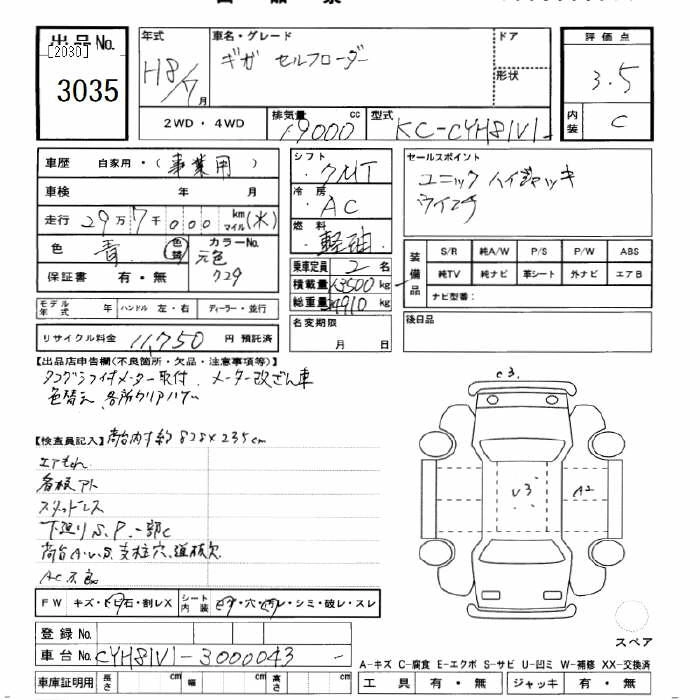 出品No.
[2030]
3035
年式
H8/7月
車名・グレード
ギガ セルフローダー
ドア
形状
評価点
3.5
内装
C
2WD・4WD
排気量 19000 cc
型式 KC-CYH81V1
車歴 自家用・(事業用)
車検 年 月
走行 29万7千000 km マイル (水)
色 青 色替
カラーNo.
元色
729
保証書 有・無
モデル年式 年 ハンドル 左・右 ディーラー・並行
リサイクル料金 11,750 円 預託済
シフト
7MT
冷房
AC
燃料
軽油
乗車定員 2 名
積載量 13500 kg
総重量 24910 kg
名変期限
月 日
セールスポイント
ユニック ハイジャッキ
ウインチ
装備品
S/R 純A/W P/S P/W ABS
純TV 純ナビ 革シート 外ナビ エアB
ナビ型番:
後日品
【出品店申告欄(不良箇所・欠品・注意事項等)】
タコグラフ付メーター取付、メーター改ざん車
色替え、各所クリアハゲ
【検査員記入】荷台内寸約 828×235cm
エアもれ
看板アト
スタッドレス
下廻りS.P.一部C
荷台A.U.S.支柱穴、道板欠
AC不良
FW キズ・ヒ石・割レX
シート内装 コゲ・穴・汚レ・シミ・破レ・スレ
登録No.
車台No. CYH81V1-3000043
車庫証明用 長さ cm 幅 cm 高さ cm
C3.
V3
A2
スペア
A-キズ C-腐食 E-エクボ S-サビ U-凹ミ W-補修 XX-交換済
工具 有・無 ジャッキ 有・無